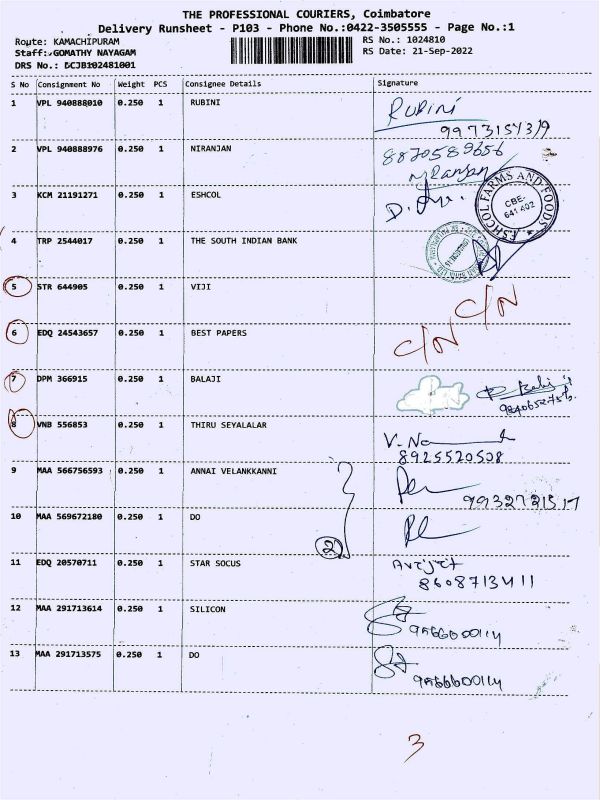 THE PROFESSIONAL COURIERS, Coimbatore
Delivery Runsheet - P103 - Phone No.:0422-3505555 - Page No.:1
Route: KAMACHIPURAM
RS No.: 1024810
Staff: GOMATHY NAYAGAM
RS Date: 21-Sep-2022
DRS No.: DCJB102481001
S No Consignment No Weight PCS Consignee Details Signature
1 VPL 940888010 0.250 1 RUBINI RUBINI
2 VPL 940888976 0.250 1 NIRANJAN 8870589656
3 KCM 21191271 0.250 1 ESHCOL
ESHCOL FARMS AND FOODS
CBE-
641 402
4 TRP 2544017 0.250 1 THE SOUTH INDIAN BANK
5 STR 644905 0.250 1 VIJI C/N
6 EDQ 24543657 0.250 1 BEST PAPERS C/N
7 DPM 366915 0.250 1 BALAJI
8 VNB 556853 0.250 1 THIRU SEYALALAR
8925520508
9 MAA 566756593 0.250 1 ANNAI VELANKKANNI
10 MAA 569672180 0.250 1 DO
2
11 EDQ 20570711 0.250 1 STAR SOCUS Avijit
8608713411
12 MAA 291713614 0.250 1 SILICON
9566600114
13 MAA 291713575 0.250 1 DO
9566600114
3